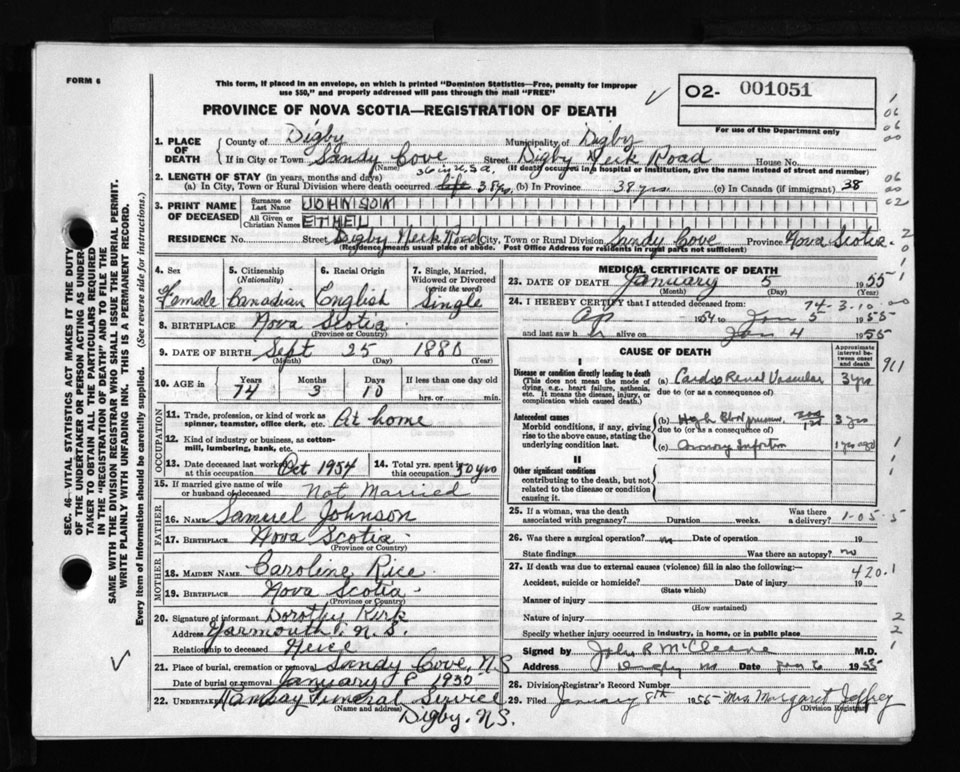 FORM 6
This form, if placed in an envelope, on which is printed "Dominion Statistics—Free, penalty for improper
use $50," and properly addressed will pass through the mail "FREE"
PROVINCE OF NOVA SCOTIA—REGISTRATION OF DEATH
O2- 001051
For use of the Department only
1. PLACE OF DEATH
County of Digby Municipality of Digby
If in City or Town Sandy Cove Street Digby Neck Road House No.
(Name) (If death occurred in a hospital or institution, give the name instead of street and number)
36 in U.S.A.
2. LENGTH OF STAY (in years, months and days)
(a) In City, Town or Rural Division where death occurred 38 yrs. (b) In Province 38 yrs (c) In Canada (if immigrant) 38
3. PRINT NAME OF DECEASED
Surname or Last Name JOHNSON
All Given or Christian Names ETHEL
RESIDENCE No. Street Digby Neck Road City, Town or Rural Division Sandy Cove Province Nova Scotia.
(Residence means usual place of abode. Post Office Address for residents in rural parts not sufficient)
4. Sex Female
5. Citizenship (Nationality) Canadian
6. Racial Origin English
7. Single, Married, Widowed or Divorced (write the word) Single
8. BIRTHPLACE Nova Scotia
(Province or Country)
9. DATE OF BIRTH Sept 25 1880
(Month) (Day) (Year)
10. AGE in Years Months Days If less than one day old
74 3 10 hrs. or min.
OCCUPATION
11. Trade, profession, or kind of work as spinner, teamster, office clerk, etc. At home
12. Kind of industry or business, as cotton-mill, lumbering, bank, etc.
13. Date deceased last worked at this occupation Oct 1954
14. Total yrs. spent in this occupation 50 yrs
15. If married give name of wife or husband of deceased Not Married
FATHER
16. NAME Samuel Johnson
17. BIRTHPLACE Nova Scotia
(Province or Country)
MOTHER
18. MAIDEN NAME Caroline Rice
19. BIRTHPLACE Nova Scotia
(Province or Country)
20. Signature of informant Dorothy Kirk
Address Yarmouth, N.S.
Relationship to deceased Neice
21. Place of burial, cremation or removal Sandy Cove, N.S
Date of burial or removal January 8 1955
22. Undertaker Ramsay Funeral Service
(Name and address)
Digby, N.S.
MEDICAL CERTIFICATE OF DEATH
23. DATE OF DEATH January 5 1955
(Month) (Day) (Year)
74-3-10
24. I HEREBY CERTIFY that I attended deceased from:
Ap 1954 to Jan 5 1955
and last saw h alive on Jan 4 1955
CAUSE OF DEATH
Approximate interval between onset and death
I
Disease or condition directly leading to death
(This does not mean the mode of dying, e.g., heart failure, asthenia, etc. It means the disease, injury, or complication which caused death.)
(a) Cardio Renal Vascular 3 yrs
due to (or as a consequence of)
Antecedent causes
Morbid conditions, if any, giving rise to the above cause, stating the underlying condition last.
(b) High Blood pressure 3 yrs
due to (or as a consequence of)
(c) Coronary Infarction 1 yr ago
II
Other significant conditions
contributing to the death, but not related to the disease or condition causing it.
25. If a woman, was the death associated with pregnancy? Duration weeks. Was there a delivery?
1-05-5
26. Was there a surgical operation? no Date of operation 19
State findings Was there an autopsy? no
27. If death was due to external causes (violence) fill in also the following:—
420.1
Accident, suicide or homicide? Date of injury 19
(State which)
Manner of injury
(How sustained)
Nature of injury
Specify whether injury occurred in industry, in home, or in public place
Signed by John R McCleave M.D.
Address Digby NS Date Jan 6 1955
28. Division Registrar's Record Number
29. Filed January 8th 1955 Mrs. Margaret Jeffrey
(Division Registrar)
SEC. 46—VITAL STATISTICS ACT MAKES IT THE DUTY
OF THE UNDERTAKER OR PERSON ACTING AS UNDERTAKER TO OBTAIN ALL THE PARTICULARS REQUIRED
IN THE "REGISTRATION OF DEATH" AND TO FILE THE
SAME WITH THE DIVISION REGISTRAR WHO SHALL ISSUE THE BURIAL PERMIT.
WRITE PLAINLY WITH UNFADING INK. THIS IS A PERMANENT RECORD.
Every item of information should be carefully supplied. (See reverse side for instructions.)